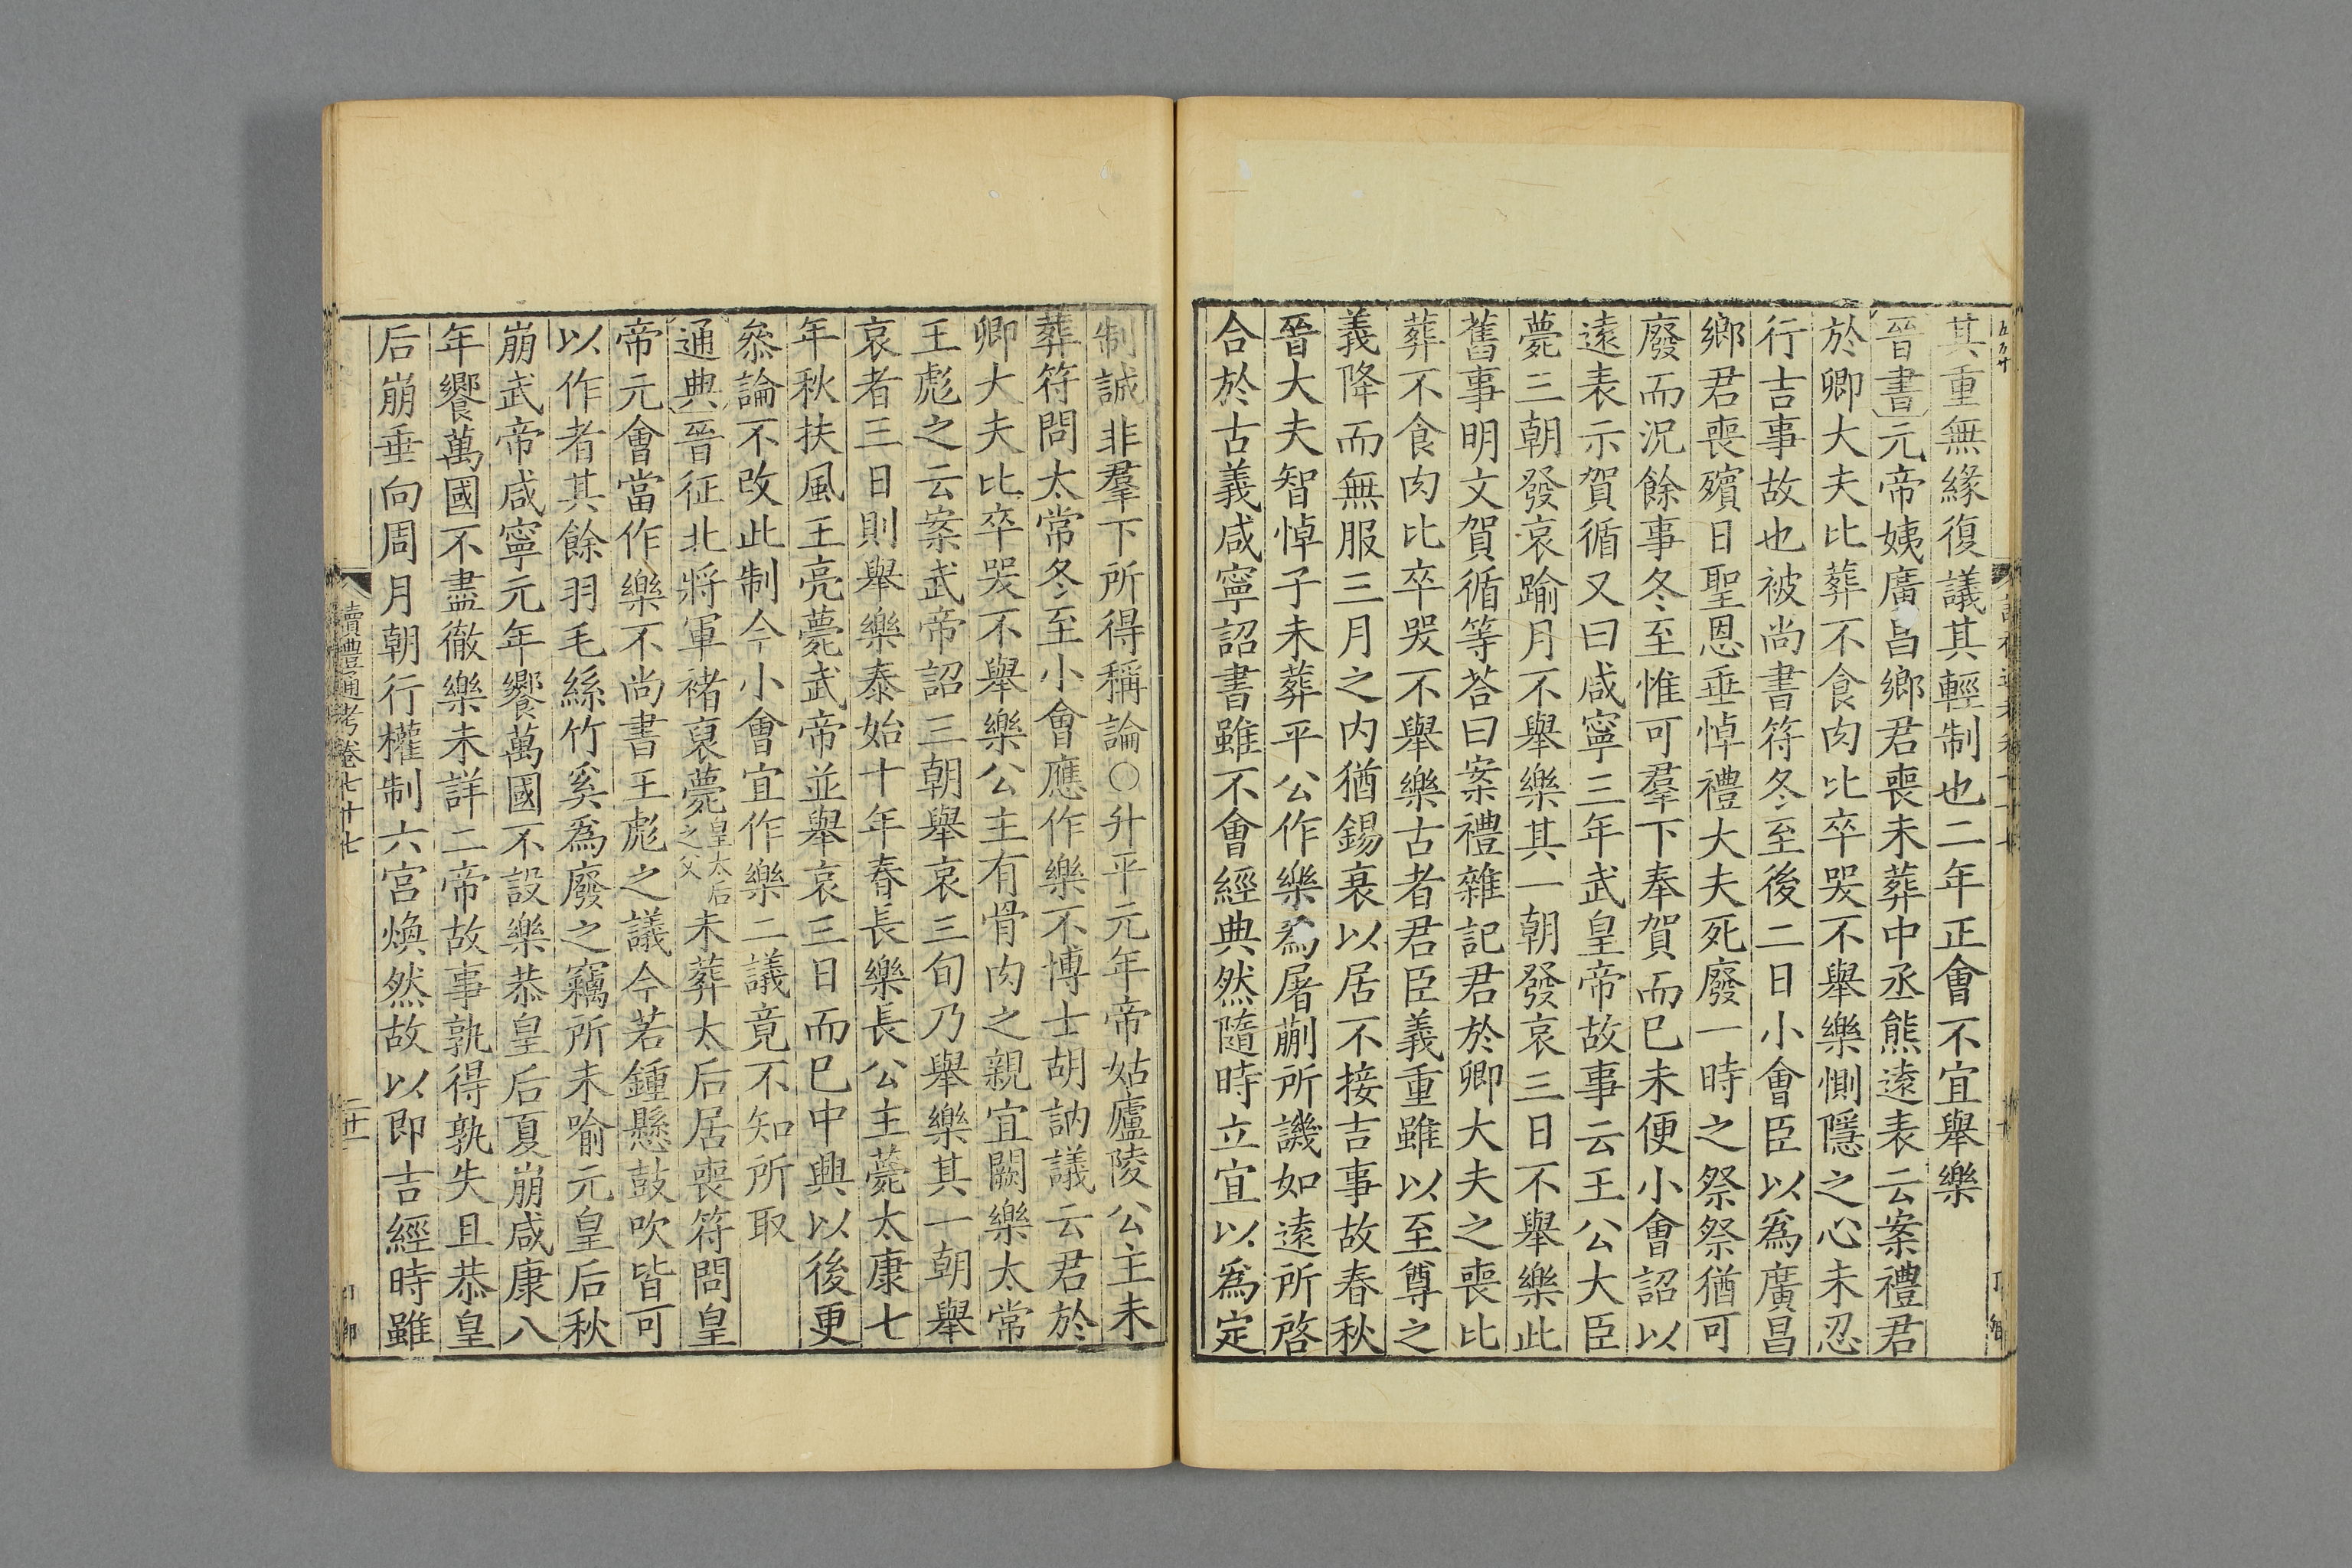 其重無緣復議其輕制也二年正會不宜舉樂
晉書元帝姨廣昌鄉君喪未葬中丞熊遠表云案禮君
於卿大夫比葬不食肉比卒哭不舉樂惻隱之心未忍
行吉事故也被尚書符冬至後二日小會臣以爲廣昌
鄉君喪殯日聖恩垂悼禮大夫死廢一時之祭祭猶可
廢而況餘事冬至惟可羣下奉賀而已未便小會詔以
遠表示賀循又曰咸寧三年武皇帝故事云王公大臣
薨三朝發哀踰月不舉樂其一朝發哀三日不舉樂此
舊事明文賀循等荅曰案禮雜記君於卿大夫之喪比
葬不食肉比卒哭不舉樂古者君臣義重雖以至尊之
義降而無服三月之内猶錫衰以居不接吉事故春秋
晉大夫智悼子未葬平公作樂爲屠蒯所譏如遠所啓
合於古義咸寧詔書雖不會經典然隨時立宜以爲定
制誠非羣下所得稱論○升平元年帝姑廬陵公主未
葬符問太常冬至小會應作樂不博士胡訥議云君於
卿大夫比卒哭不舉樂公主有骨肉之親宜闕樂太常
王彪之云案武帝詔三朝舉哀三旬乃舉樂其一朝舉
哀者三日則舉樂泰始十年春長樂長公主薨太康七
年秋扶風王亮薨武帝並舉哀三日而已中興以後更
叅論不改此制今小會宜作樂二議竟不知所取
通典晉征北將軍褚裒薨皇太后之父未葬太后居喪符問皇
帝元會當作樂不尚書王彪之議今若鍾懸鼓吹皆可
以作者其餘羽毛絲竹奚爲廢之竊所未喻元皇后秋
崩武帝咸寧元年饗萬國不設樂恭皇后夏崩咸康八
年饗萬國不盡徹樂未詳二帝故事孰得孰失且恭皇
后崩垂向周月朝行權制六宮煥然故以即吉經時雖
讀禮通考卷七十七